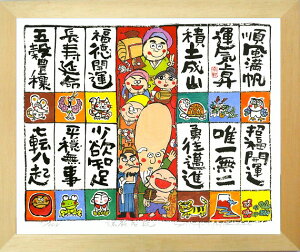 順風満帆
運気上昇
積土成山
福徳開運
長寿延命
五穀豊穣
招福開運
唯一無二
勇往邁進
少欲知足
平穏無事
七転八起